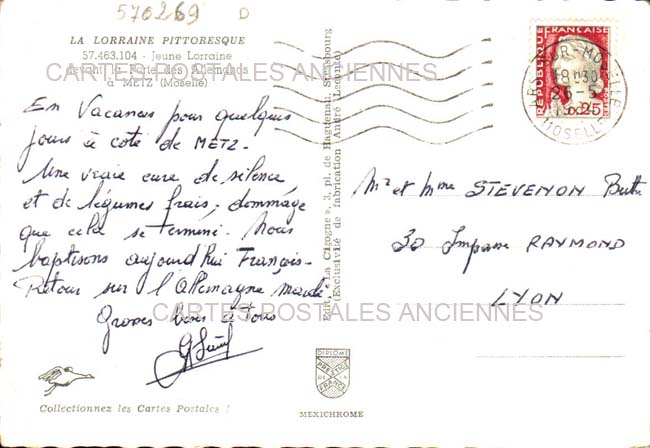 570269 D
LA LORRAINE PITTORESQUE
57.463.104 - Jeune Lorraine
devant la Porte des Allemands
à METZ (Moselle)
CARTES POSTALES ANCIENNES
En Vacances pour quelques
jours à coté de METZ.
Une vraie cure de silence
et de légumes frais, dommage
que cela se termine. Nous
baptisons aujourd'hui François.
Retour sur l'Allemagne mardi
Grosses bises à Tous
CARTES POSTALES ANCIENNES
Collectionnez les Cartes Postales !
Edit. « La Cigogne », 3, pl. de Haguenau, Strasbourg
(Exclusivité de fabrication André Leconte)
DIPLOME
PRESTIGE
DE LA
FRANCE
MEXICHROME
REPUBLIQUE FRANÇAISE
0,25
ARS-SUR-MOSELLE
18H30
26-5
MOSELLE
Mr et Mme STEVENON
30 Impasse RAYMOND
LYON